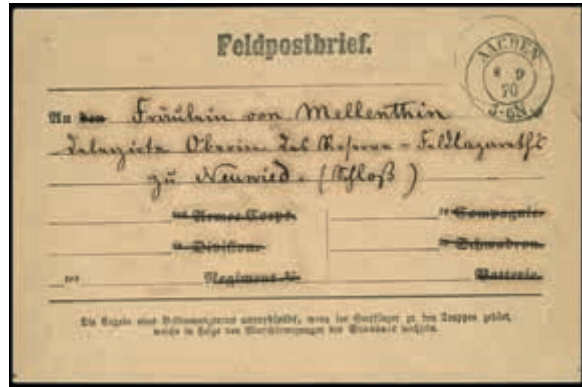 Feldpostbrief.
AACHEN
8 9
70
5-6N
An den Fräulein von Mellenthin
delegirte Oberin des Reserve-Feldlazareths
zu Neuwied. (Schloß)
tes Armee-Corps. te Compagnie.
te Division. te Schwadron.
tes Regiment N. Batterie.
Die Angabe eines Bestimmungsortes unterbleibt, wenn der Empfänger zu den Truppen gehört,
welche in Folge von Marschbewegungen den Standort wechseln.